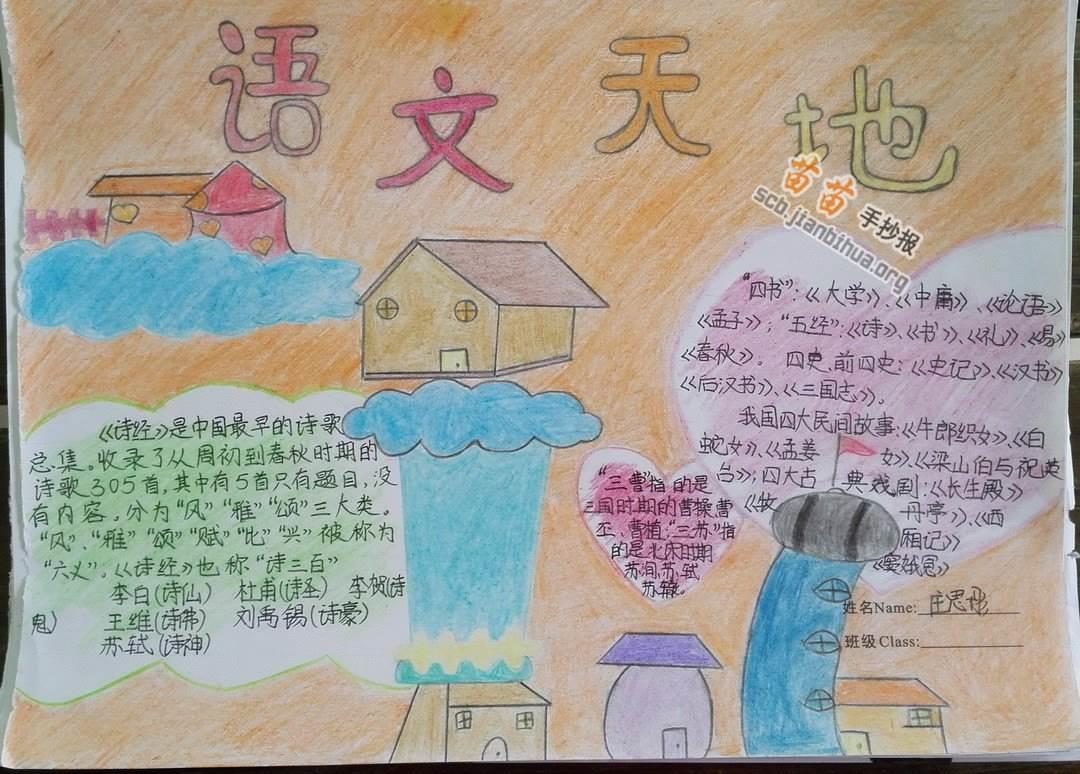 语文天地
苗苗
手抄报
scb.jianbihua.org
《诗经》是中国最早的诗歌
总集。收录了从周初到春秋时期的
诗歌305首,其中有5首只有题目,没
有内容。分为“风”“雅”“颂”三大类。
“风”、“雅”“颂”“赋”“比”“兴”被称为
“六义”。《诗经》也称“诗三百”
李白(诗仙) 杜甫(诗圣) 李贺(诗
鬼) 王维(诗佛) 刘禹锡(诗豪)
苏轼(诗神)
“三曹”指的是
三国时期的曹操,曹
丕、曹植,“三苏”指
的是北宋时期
苏洵,苏轼
苏辙。
“四书”:《大学》、《中庸》、《论语》
《孟子》;“五经”:《诗》、《书》、《礼》、《易》
《春秋》。 四史、前四史:《史记》、《汉书》
《后汉书》、《三国志》。
我国四大民间故事:《牛郎织女》、《白
蛇女》、《孟姜女》、《梁山伯与祝英
台》;四大古典戏剧:《长生殿》
《牡丹亭》、《西
厢记》
《窦娥冤》
姓名Name: 庄思彤
班级Class: